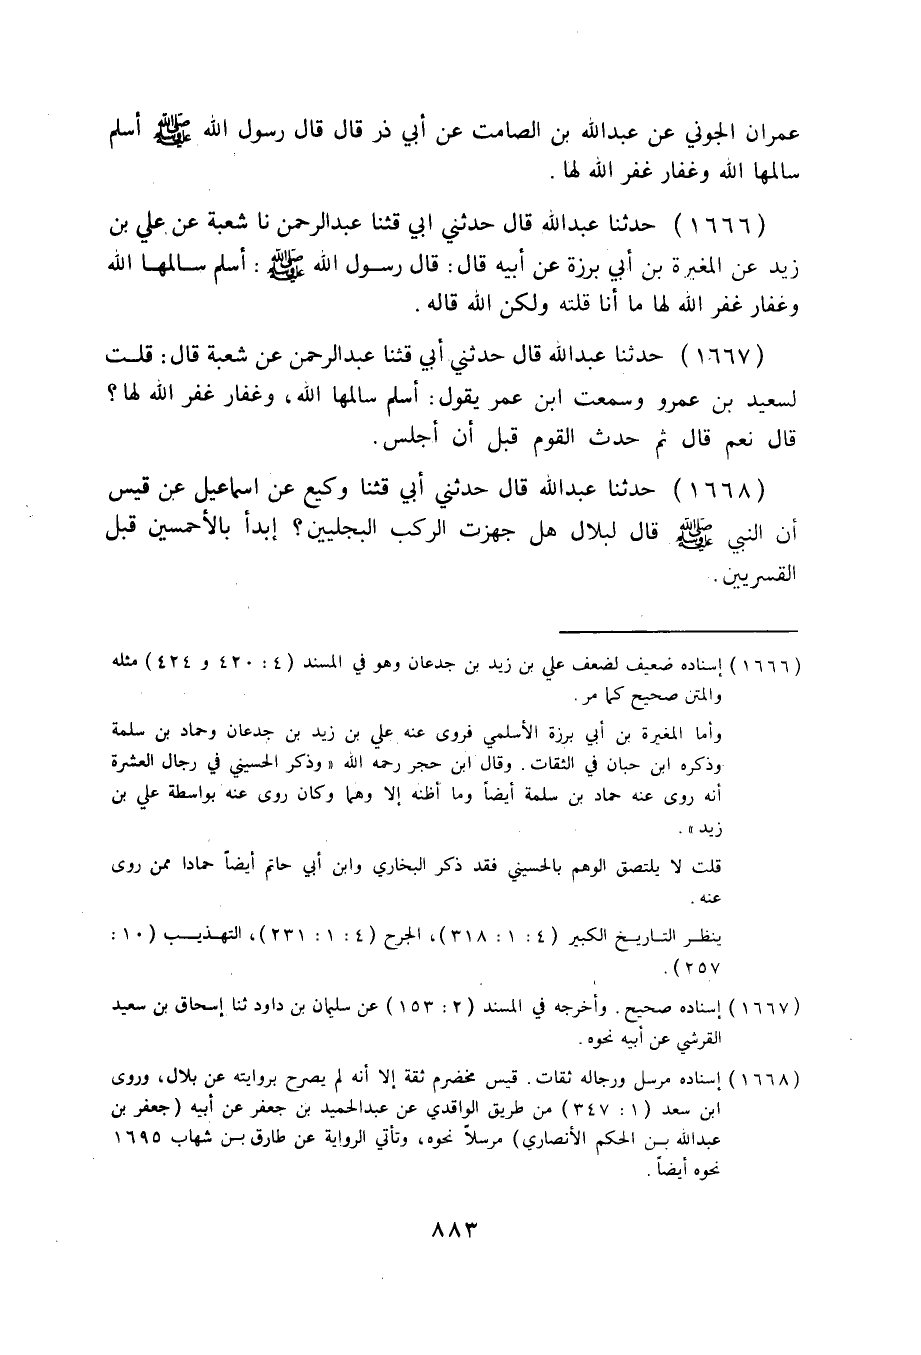 عمران الجوني عن عبدالله بن الصامت عن أبي ذر قال قال رسول الله ﷺ أسلم
سالمها الله وغفار غفر الله لها .
(١٦٦٦) حدثنا عبدالله قال حدثني ابي قثنا عبدالرحمن نا شعبة عن علي بن
زيد عن المغيرة بن أبي برزة عن أبيه قال : قال رسول الله ﷺ : أسلم سالمها الله
وغفار غفر الله لها ما أنا قلته ولكن الله قاله .
(١٦٦٧) حدثنا عبدالله قال حدثني أبي قثنا عبدالرحمن عن شعبة قال : قلت
لسعيد بن عمرو وسمعت ابن عمر يقول : أسلم سالمها الله، وغفار غفر الله لها ؟
قال نعم قال ثم حدث القوم قبل أن أجلس.
(١٦٦٨) حدثنا عبدالله قال حدثني أبي قثنا وكيع عن اسماعيل عن قيس
أن النبي ﷺ قال لبلال هل جهزت الركب البجليين؟ إبدأ بالأحمسين قبل
القسريين.
(١٦٦٦) إسناده ضعيف لضعف علي بن زيد بن جدعان وهو في المسند (٤ : ٤٢٠ و ٤٢٤) مثله
والمتن صحيح كما مر .
وأما المغيرة بن أبي برزة الأسلمي فروى عنه علي بن زيد بن جدعان وحماد بن سلمة
وذكره ابن حبان في الثقات . وقال ابن حجر رحمه الله « وذكر الحسيني في رجال العشرة
أنه روى عنه حماد بن سلمة أيضاً وما أظنه إلا وهما وكان روى عنه بواسطة علي بن
زيد » .
قلت لا يلتصق الوهم بالحسيني فقد ذكر البخاري وابن أبي حاتم أيضاً حمادا ممن روى
عنه .
ينظر التاريخ الكبير (٤ : ١ : ٣١٨)، الجرح (٤ : ١ : ٢٣١)، التهذيب (١٠ :
٢٥٧).
(١٦٦٧) إسناده صحيح . وأخرجه في المسند (٢ : ١٥٣) عن سليمان بن داود ثنا إسحاق بن سعيد
القرشي عن أبيه نحوه .
(١٦٦٨) إسناده مرسل ورجاله ثقات . قيس مخضرم ثقة إلا أنه لم يصرح بروايته عن بلال، وروى
ابن سعد (١ : ٣٤٧) من طريق الواقدي عن عبدالحميد بن جعفر عن أبيه (جعفر بن
عبدالله بن الحكم الأنصاري) مرسلاً نحوه، وتأتي الرواية عن طارق بن شهاب ١٦٩٥
نحوه أيضاً .
٨٨٣